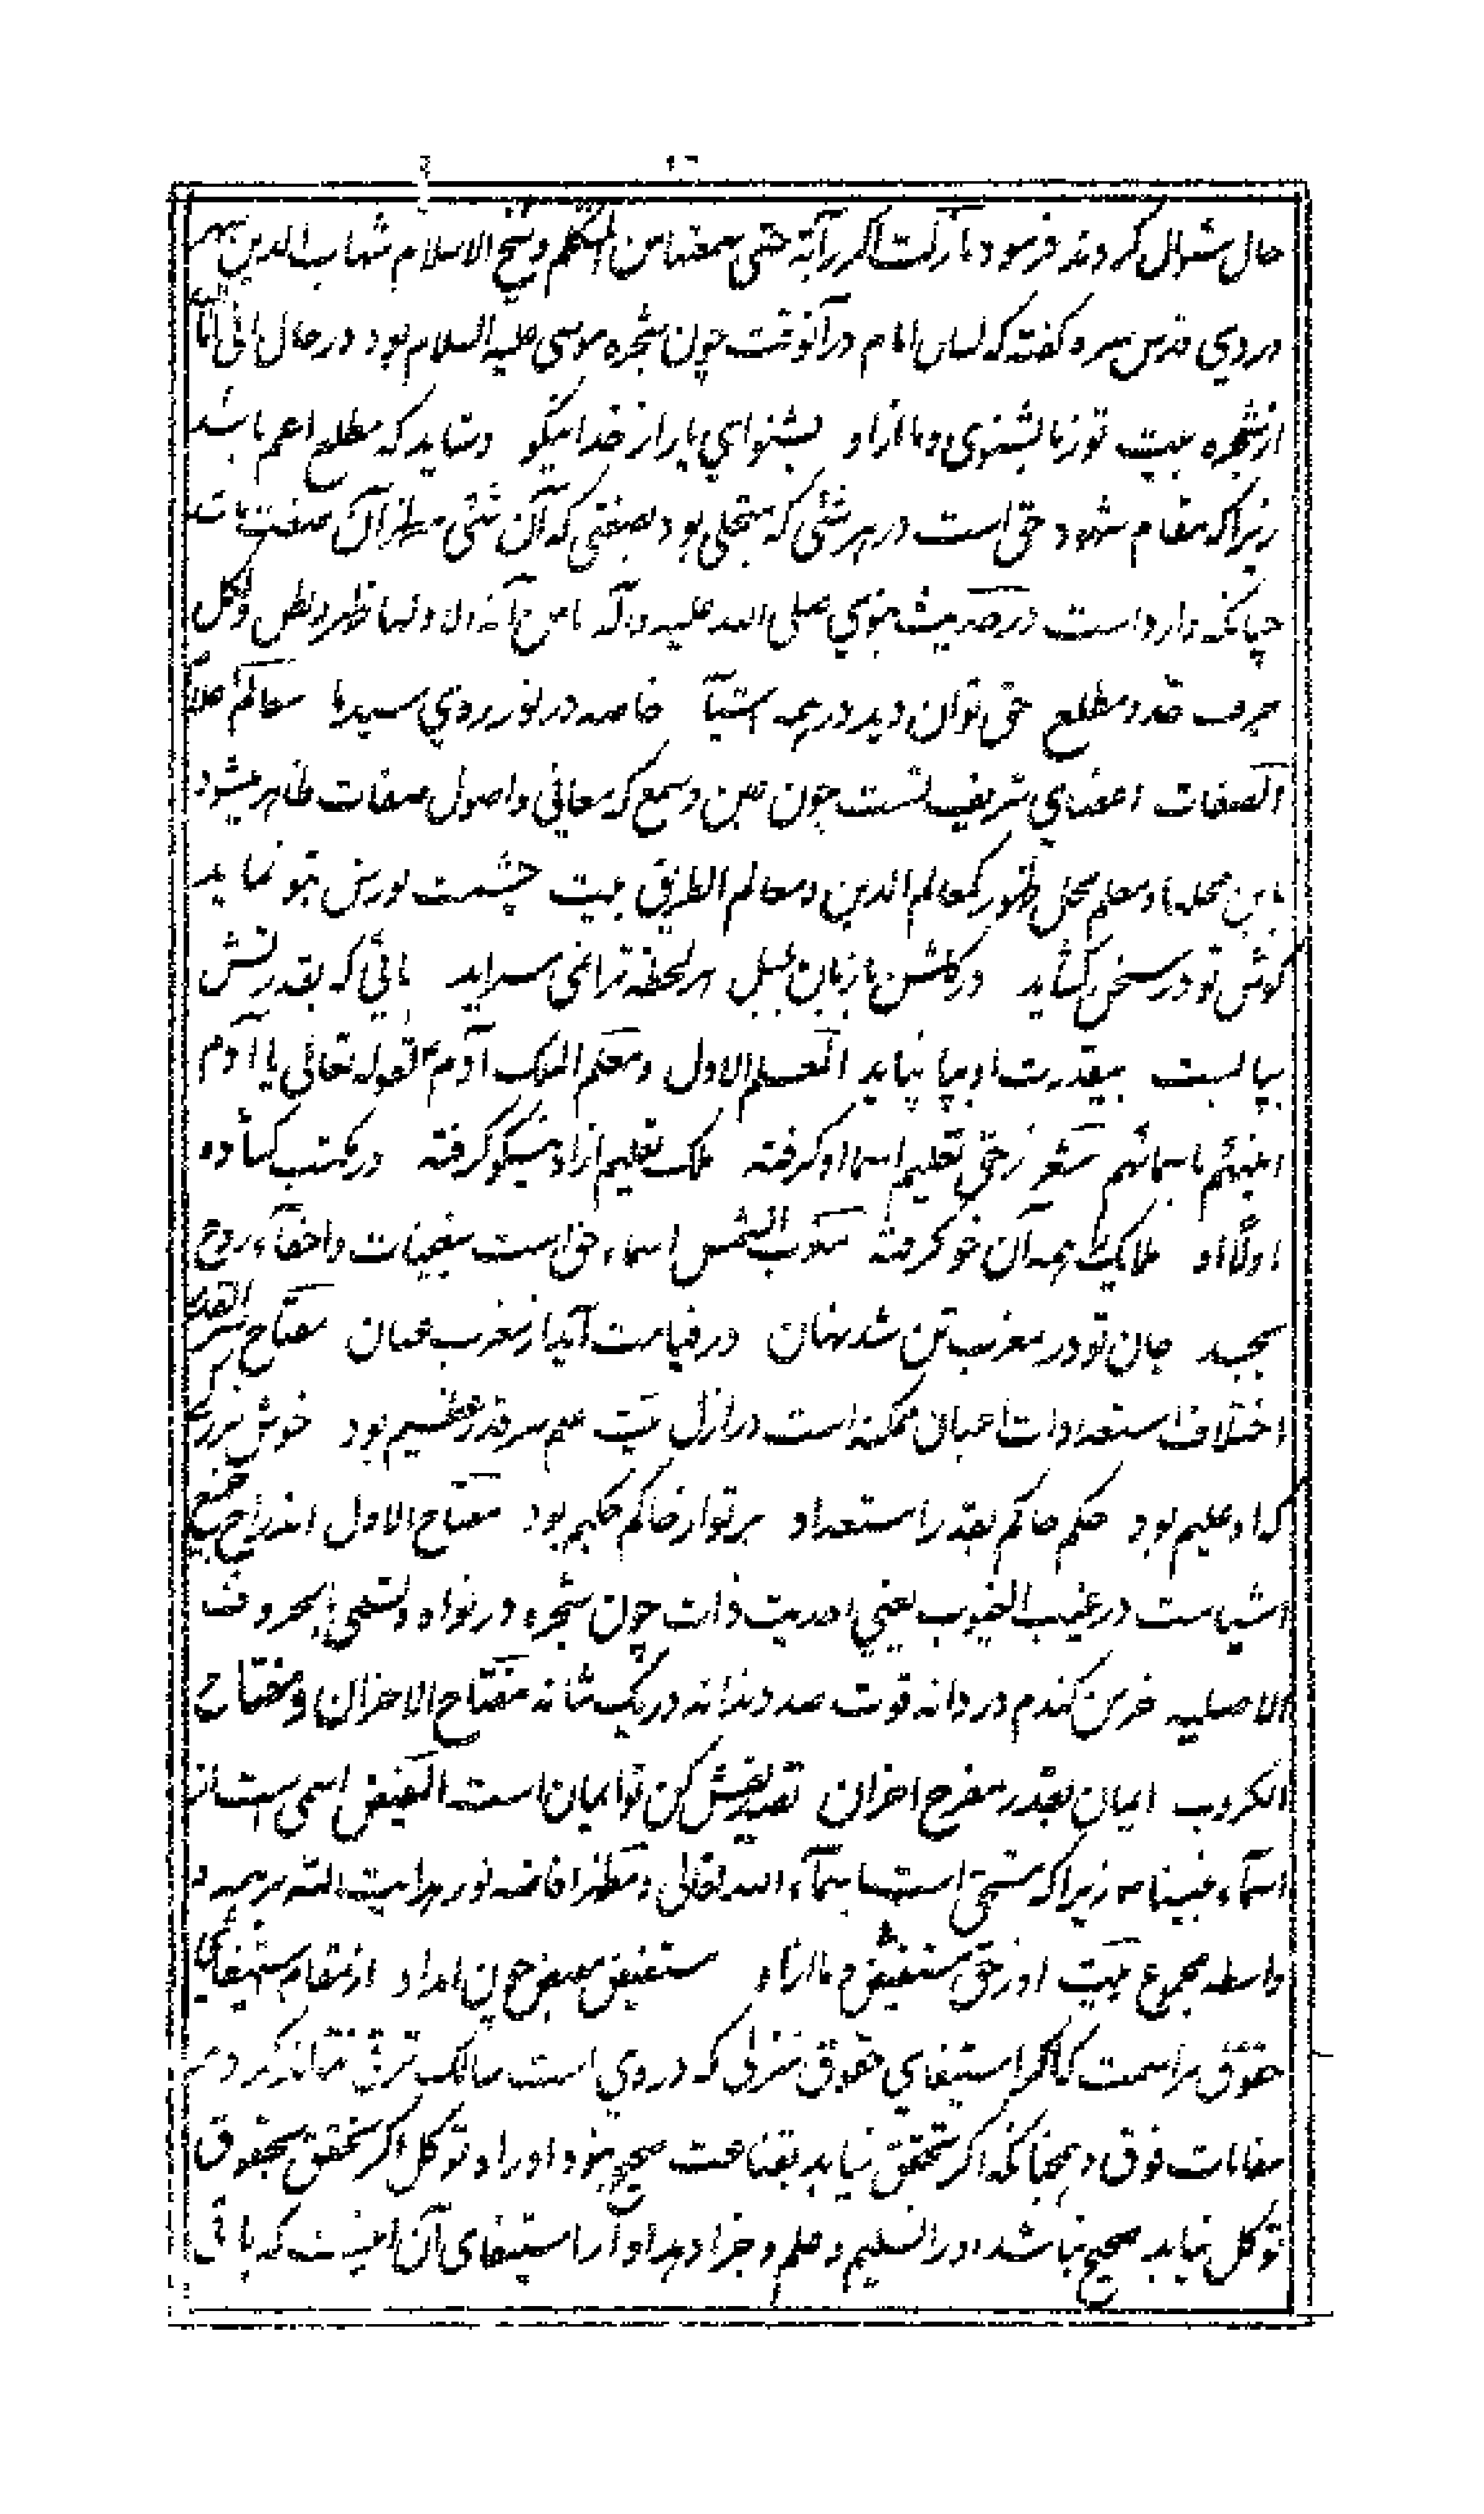 حال سئوال کردند فرمود ما زلت اکرر آیة حتی سمعتها من المتکلم و شیخ الاسلام شهاب الدین سهر
وردی قدس سره کفته که لسان امام در آنوقت چون شجره موسی علیه السلام بود در حال انی انا الله
از شجره بیت تو ز ما بشنوی و ما از او بشنو ای یار از خدا میکو و شاید که مطلع اعم باشد
زیرا که مقام شهود حق است در هر شئی که متجلی بود بصفتی که آن شئی مظهر آن صفت باشد
چنانکه وارد است در حدیث نبوی صلی الله علیه و آله ما من آیة الا و لها ظهر و بطن و لکل
حرف حد و مطلع حق توان دید در همه اشیآ خاصه در نور روی سیدنا معالم اعلام
الصفات اعضای شریف تست چون عین و سمع که معانی و اصول صفات ظاهر میشود
باین محلها و معلم محل ظهور کمعالم الدین و معالم الطریق بیت چشمت نورش بتو نماید
کوش تو در سخن کشاید در کلشن با زبان بلبل هر لحظه ترانمی سراید پائی که بقدرتش
بپا بست بیقدرت او بپا نپاید المعلم الاول و معلم الملک آدم لقوله تعالی یا آدم
انبئهم باسمائهم شعر ز حق تعلیم اسما او کرفته ملک تعلیم از او نیکو کرفته در مکتب کشاده
اولا او ملایک همه آن خو کرفته مغرب الشمس اسماء حق است بتعینات و اخفآء روح
بجسد جان تو در مغرب تن شد نهان در قیامت آید از مغرب عیان مفتاح سر القدر
اختلاف استعدادات اعیان ممکنه است در ازل بیت علم سر قدر عظیم بود خوش بود
که او علیم بود حکم حاکم بقدر استعداد بر تو از حاکم حکیم بود مفتاح الاول اندراج جمیع
اشیاست در غیب الغیوب یعنی احدیت ذات چون شجره در نواه و تسمی بالحروف
الاصلیه خرمن کندم در دانه قوت صد دندانه در یک شانه مفتاح الاحزان و مفتاح
الکروب ایمان بقدر مفرح احزان تصدیقش کن تو ایمان است المفیض اسمی است از
اسمآء نبینا ص زیرا که متحقق است باسمآء الله تعالی و مظهر افاضه نور هدایت الله بر همه و
واسطه مجموع بیت او ز حق مستفیض و ما از او مستفیض مفیض چون امداد از مقام استیفای
حقوق مراسمت که اکر استیفای حقوق منزلی که در وی است سالک ترقی نتواند کرد در
مقامات فوق و همچنانکه اکر متحقق نیاید بقناعت صحیح نبود او را و توکل اکر متحقق بحقوق
توکل نیابد صحیح نباشد او را تسلیم و علم و جزا و مراد از استیفای آن این نیست که باقی